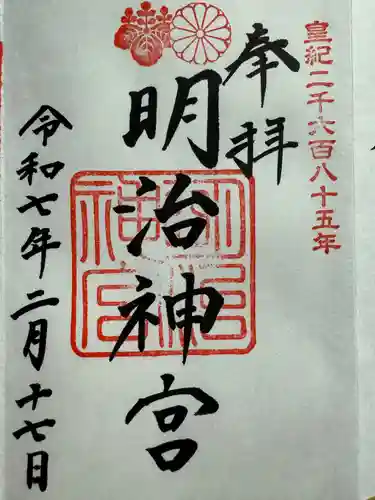 皇紀二千六百八十五年
奉拝
明治神宮
明治神宮
令和七年二月十七日